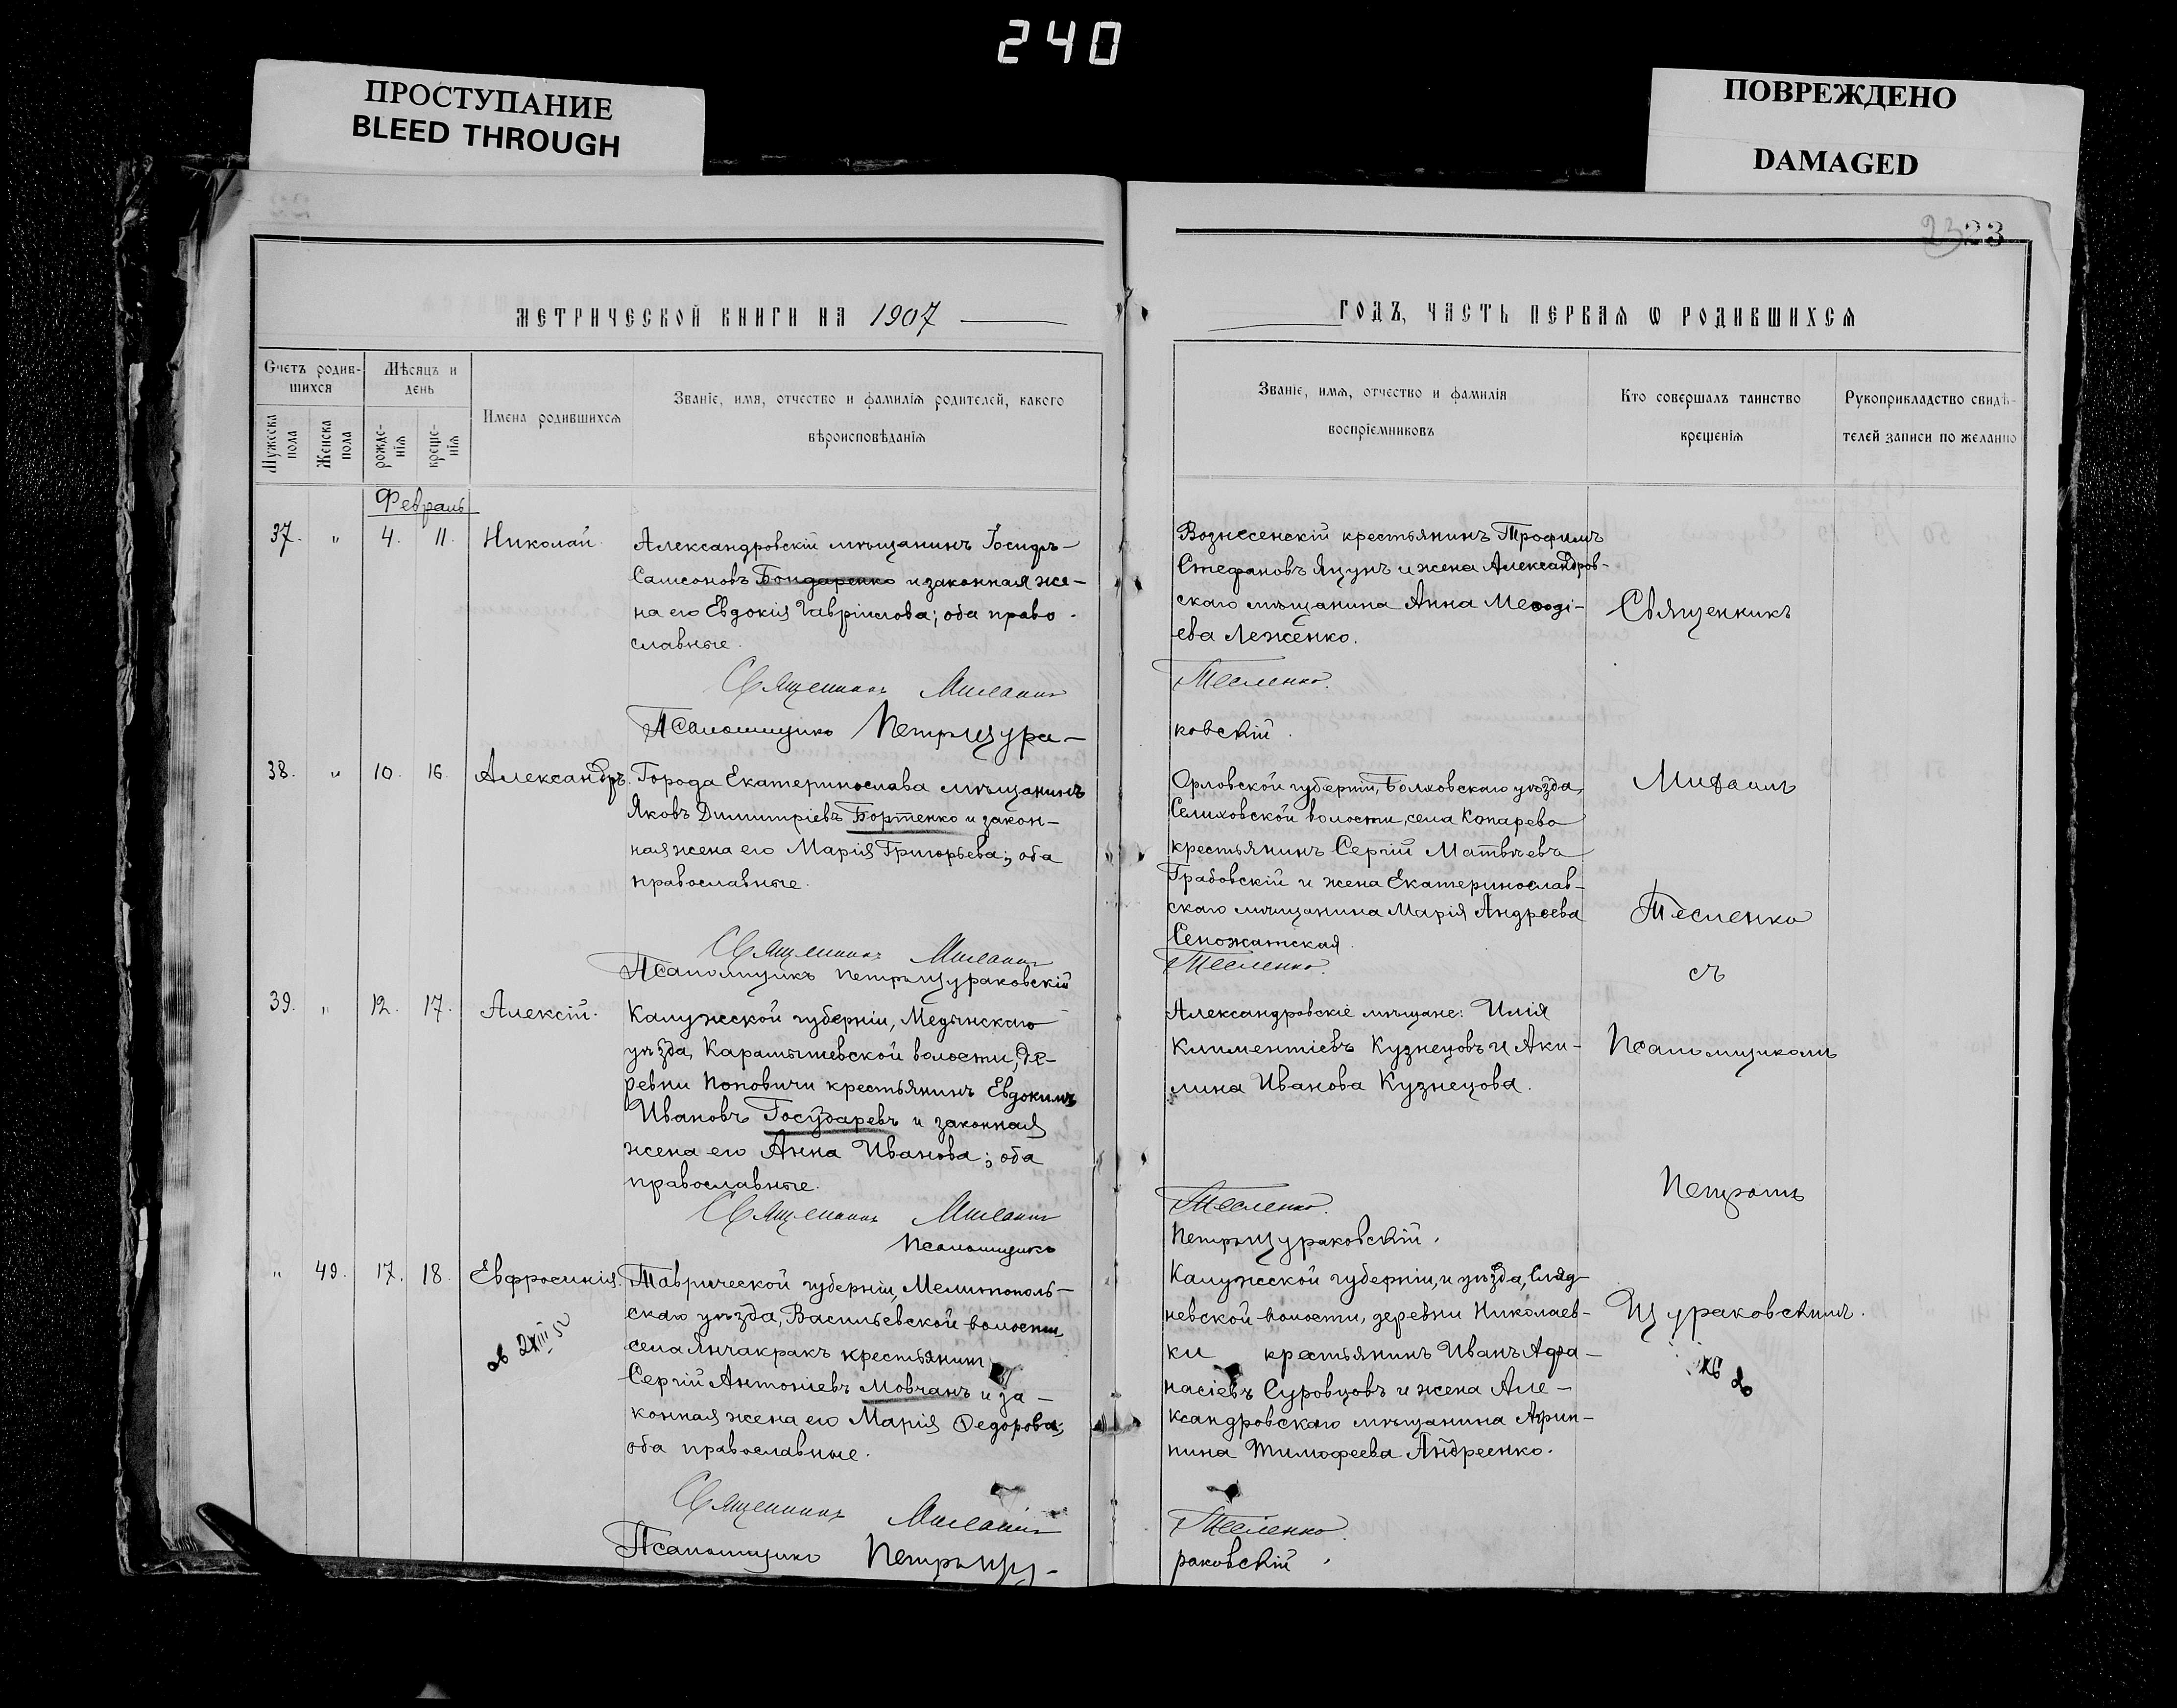 240
ПРОСТУПАНИЕ
BLEED THROUGH
ПОВРЕЖДЕНО
DAMAGED
23 23
МЕТРИЧЕСКОЙ КНИГИ НА 1907
Счетъ родив-
шихся
Мѣсяцъ и
день
Мужеска
пола
Женска
пола
рожде-
нія
креще-
нія
Имена родившихся
Званіе, имя, отчество и фамилія родителей, какого
вѣроисповѣданія
Февраль
37. " 4. 11. Николай.
Александровскій мѣщанинъ Іосифъ
Самсоновъ Бондаренко и законная же-
на его Евдокія Гавріилова; оба право-
славные.
Священникъ Михаилъ
Псаломщикъ Петръ Щура-
38. " 10. 16. Александръ.
Города Екатеринослава мѣщанинъ
Яковъ Димитріевъ Бортенко и закон-
ная жена его Марія Григорьева; оба
православные.
Священникъ Михаилъ
Псаломщикъ Петръ Щураковскій
39. " 12. 17. Алексій.
Калужской губерніи, Медынскаго
уѣзда, Карамышевской волости, де-
ревни Поповичи крестьянинъ Евдокимъ
Ивановъ Государевъ и законная
жена его Анна Иванова; оба
православные.
Священникъ Михаилъ
Псаломщикъ
" 49. 17. 18. Евфросинія.
Таврической губерніи, Мелитополь-
скаго уѣзда, Васильевской волости
села Янчакракъ крестьянинъ
Сергій Антоніевъ Мовчанъ и за-
конная жена его Марія Ѳедорова;
оба православные.
Священникъ Михаилъ
Псаломщикъ Петръ Щу-
ГОДЪ, ЧАСТЬ ПЕРВАЯ Ѡ РОДИВШИХСЯ
Званіе, имя, отчество и фамилія
воспріемниковъ
Кто совершалъ таинство
крещенія
Рукоприкладство свидѣ-
телей записи по желанію
Вознесенскій крестьянинъ Трофимъ
Стефановъ Яцунъ и жена Александров-
скаго мѣщанина Анна Меѳоді-
ева Леженко.
Тесленко.
ковскій.
Орловской губерніи, Болховскаго уѣзда,
Селиховской волости, села Копарево
крестьянинъ Сергій Матвѣевъ
Грабовскій и жена Екатеринослав-
скаго мѣщанина Марія Андреева
Сеножатская.
Тесленко.
Александровскіе мѣщане: Илія
Климентіевъ Кузнецовъ и Аки-
лина Иванова Кузнецова.
Тесленко.
Петръ Щураковскій.
Калужской губерніи, и уѣзда, Сляд-
невской волости, деревни Николаев-
ки крестьянинъ Иванъ Афа-
насіевъ Суровцовъ и жена Але-
ксандровскаго мѣщанина Агрип-
пина Тимофеева Андреенко.
Тесленко.
раковскій
Священникъ
Михаилъ
Тесленко
съ
Псаломщикомъ
Петромъ
Щураковскимъ.